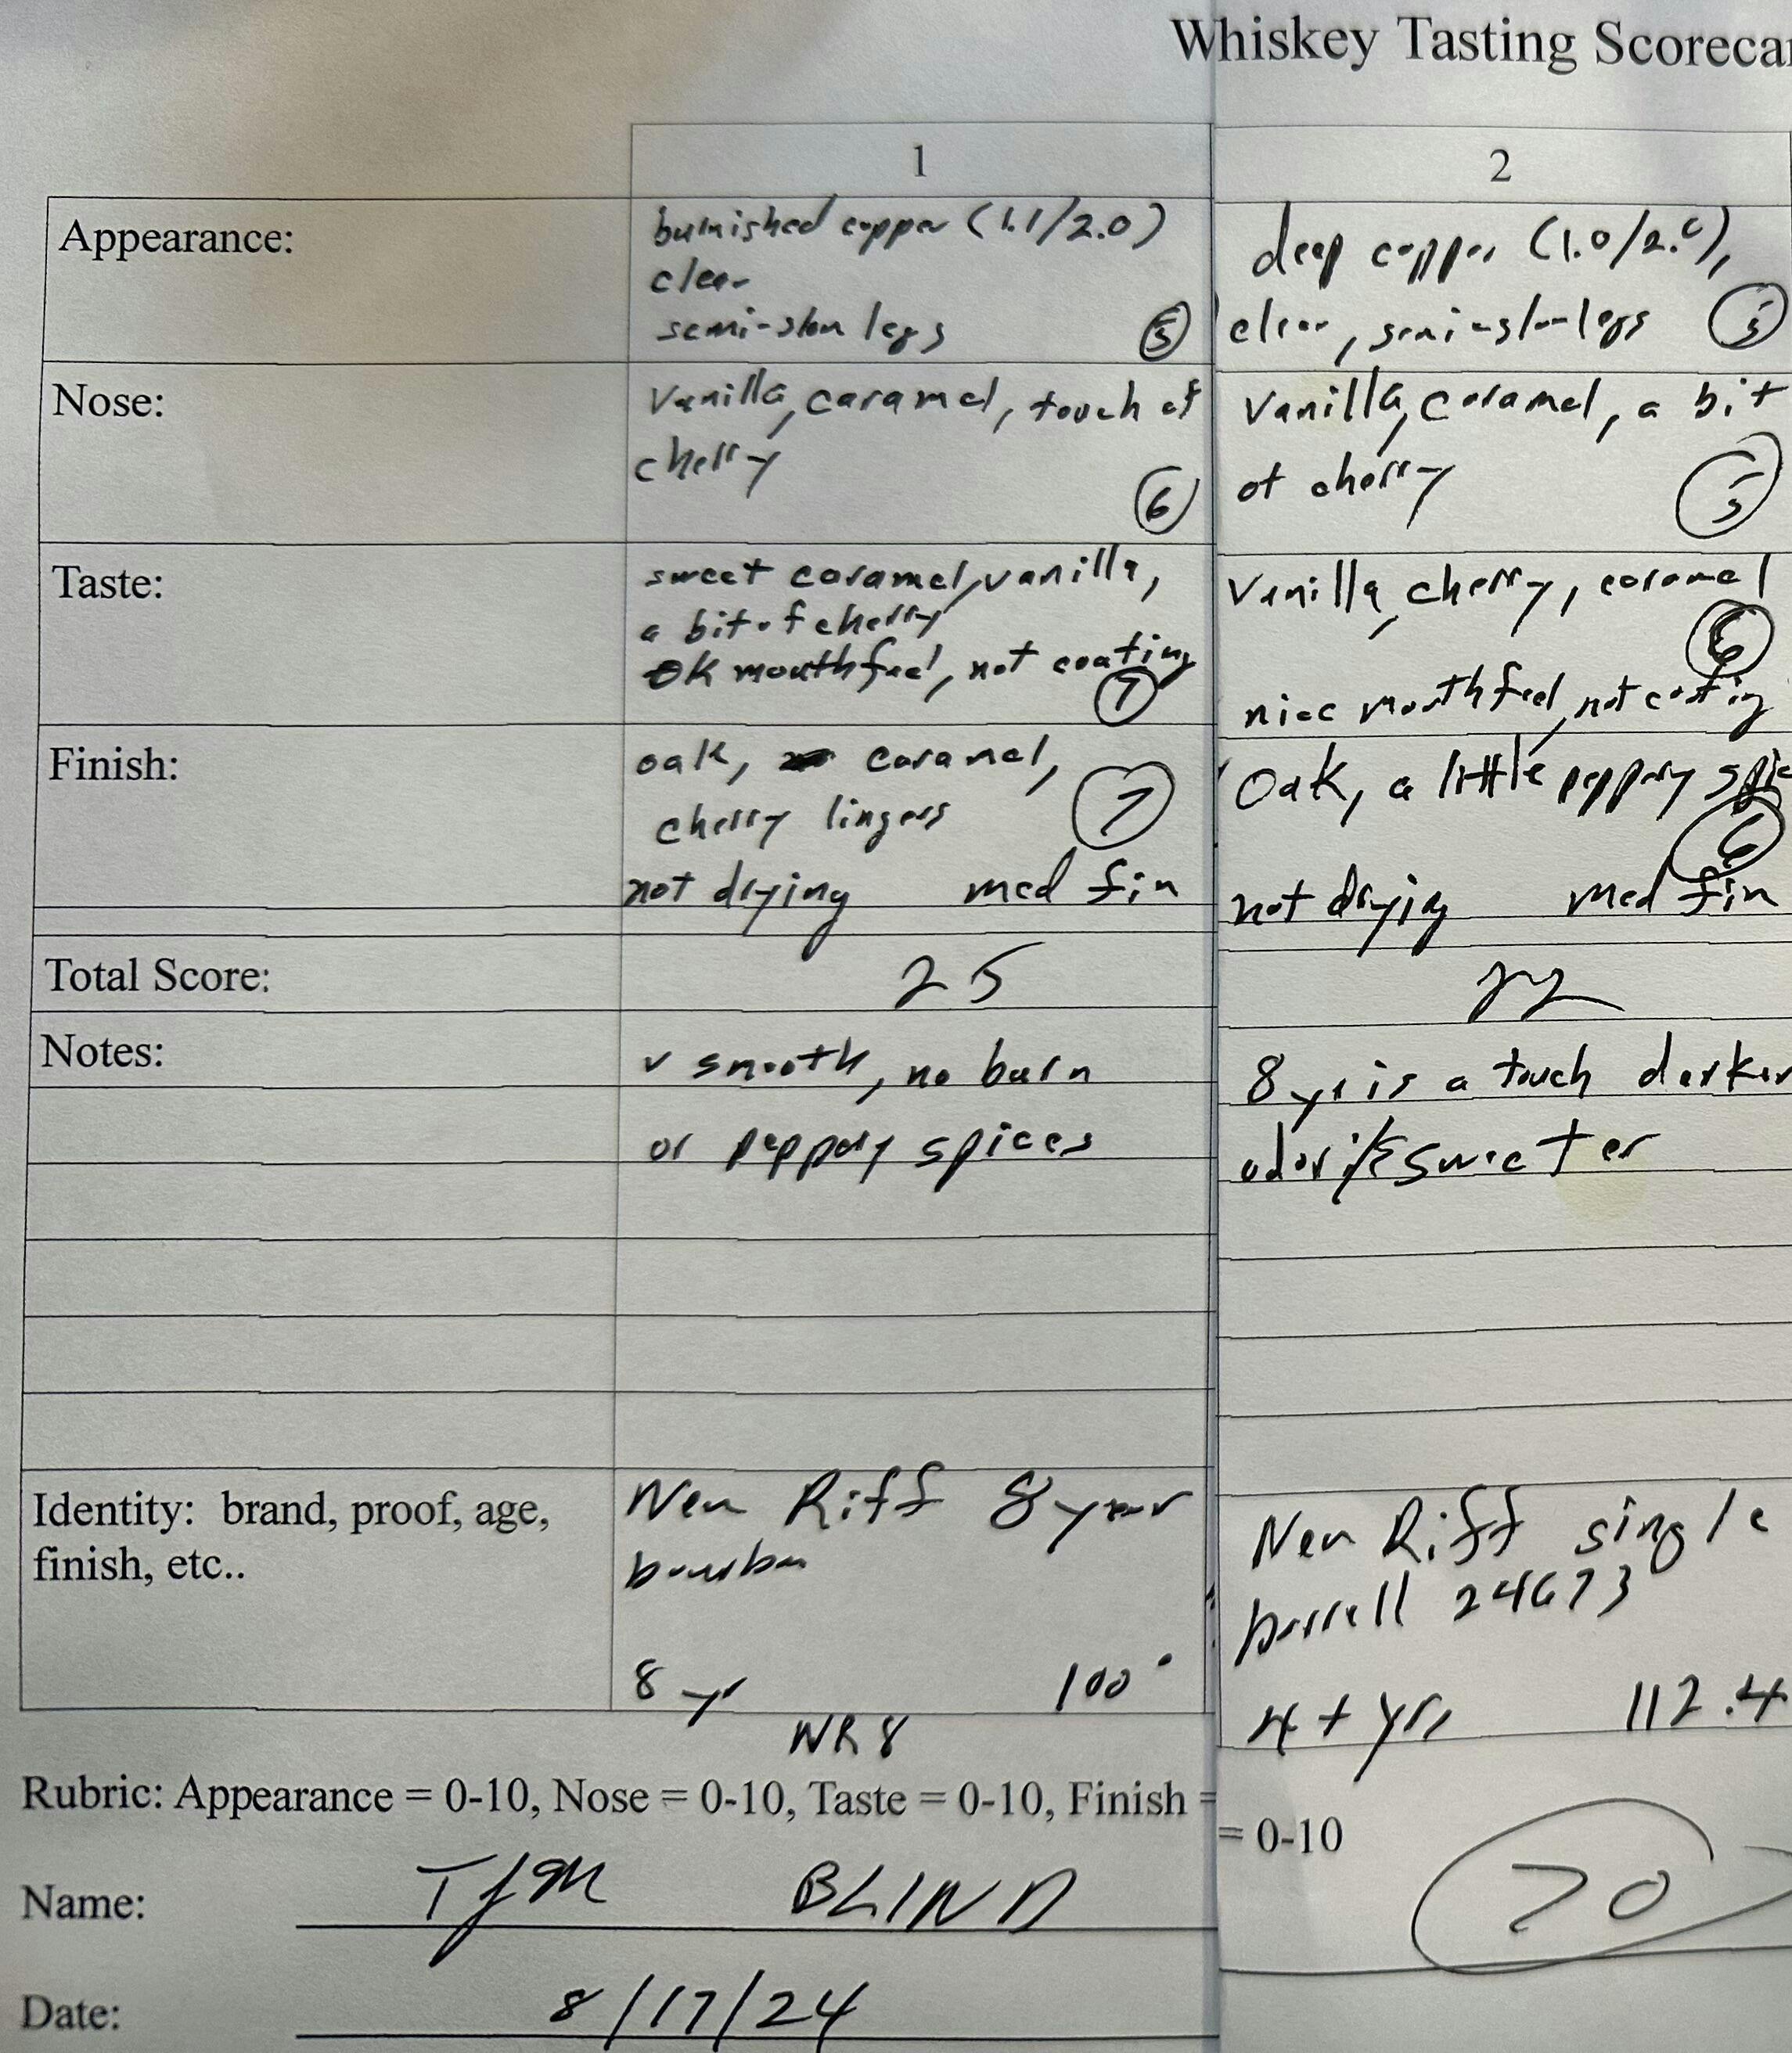 Whiskey Tasting Scorecar
1
2
Appearance:
burnished copper (1.1/2.0)
clear
semi-slow legs
5
deep copper (1.0/2.0),
clear, semi-slow legs
5
Nose:
Vanilla, caramel, touch of
cherry
6
Vanilla, caramel, a bit
of cherry
5
Taste:
sweet caramel, vanilla,
a bit of cherry
OK mouthfeel, not coating
7
Vanilla, cherry, caramel
6
nice mouthfeel, not coating
Finish:
oak, caramel,
cherry lingers
7
not drying med fin
Oak, a little peppery spic
6
not drying med fin
Total Score:
25
22
Notes:
v smooth, no burn
or peppery spices
8 yr is a touch darker
odor is sweeter
Identity: brand, proof, age,
finish, etc..
New Riff 8 year
bourbon
8 yr 100°
NR 8
New Riff single
barrell 24673
4 + yrs 112.4
Rubric: Appearance = 0-10, Nose = 0-10, Taste = 0-10, Finish =
= 0-10
Name: TJM BLIND
70
Date: 8/17/24